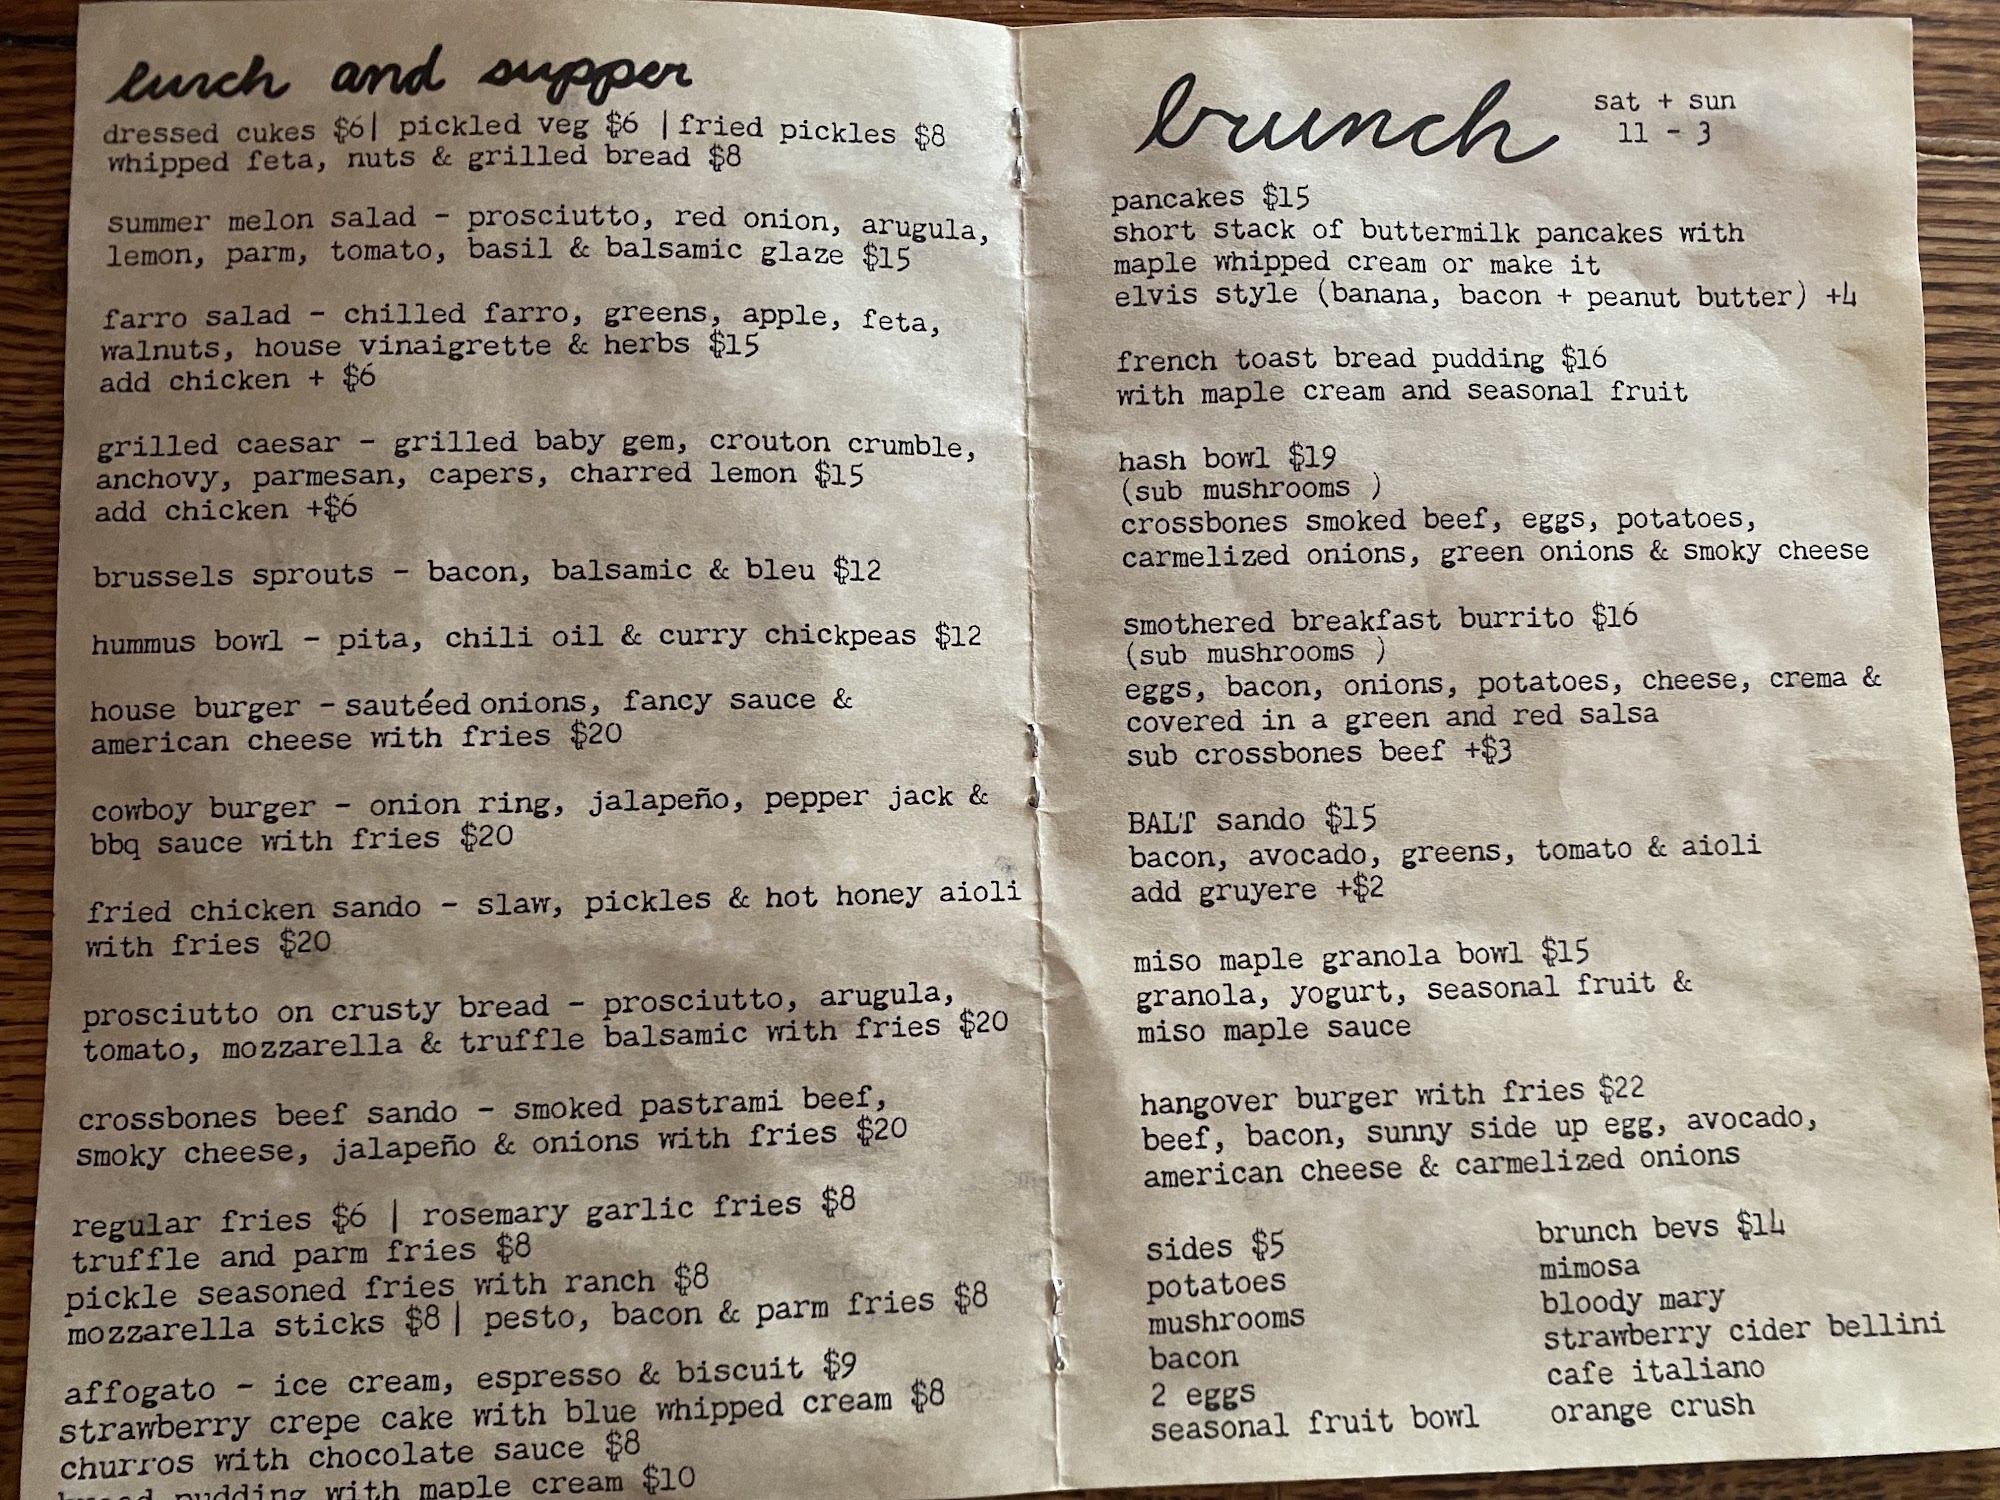 lunch and supper
dressed cukes $6| pickled veg $6 |fried pickles $8
whipped feta, nuts & grilled bread $8
summer melon salad - prosciutto, red onion, arugula,
lemon, parm, tomato, basil & balsamic glaze $15
farro salad - chilled farro, greens, apple, feta,
walnuts, house vinaigrette & herbs $15
add chicken + $6
grilled caesar - grilled baby gem, crouton crumble,
anchovy, parmesan, capers, charred lemon $15
add chicken +$6
brussels sprouts - bacon, balsamic & bleu $12
hummus bowl - pita, chili oil & curry chickpeas $12
house burger - sautéed onions, fancy sauce &
american cheese with fries $20
cowboy burger - onion ring, jalapeño, pepper jack &
bbq sauce with fries $20
fried chicken sando - slaw, pickles & hot honey aioli
with fries $20
prosciutto on crusty bread - prosciutto, arugula,
tomato, mozzarella & truffle balsamic with fries $20
crossbones beef sando - smoked pastrami beef,
smoky cheese, jalapeño & onions with fries $20
regular fries $6 | rosemary garlic fries $8
truffle and parm fries $8
pickle seasoned fries with ranch $8
mozzarella sticks $8| pesto, bacon & parm fries $8
affogato - ice cream, espresso & biscuit $9
strawberry crepe cake with blue whipped cream $8
churros with chocolate sauce $8
bread pudding with maple cream $10
brunch
sat + sun
11 - 3
pancakes $15
short stack of buttermilk pancakes with
maple whipped cream or make it
elvis style (banana, bacon + peanut butter) +4
french toast bread pudding $16
with maple cream and seasonal fruit
hash bowl $19
(sub mushrooms )
crossbones smoked beef, eggs, potatoes,
carmelized onions, green onions & smoky cheese
smothered breakfast burrito $16
(sub mushrooms )
eggs, bacon, onions, potatoes, cheese, crema &
covered in a green and red salsa
sub crossbones beef +$3
BALT sando $15
bacon, avocado, greens, tomato & aioli
add gruyere +$2
miso maple granola bowl $15
granola, yogurt, seasonal fruit &
miso maple sauce
hangover burger with fries $22
beef, bacon, sunny side up egg, avocado,
american cheese & carmelized onions
sides $5
potatoes
mushrooms
bacon
2 eggs
seasonal fruit bowl
brunch bevs $14
mimosa
bloody mary
strawberry cider bellini
cafe italiano
orange crush